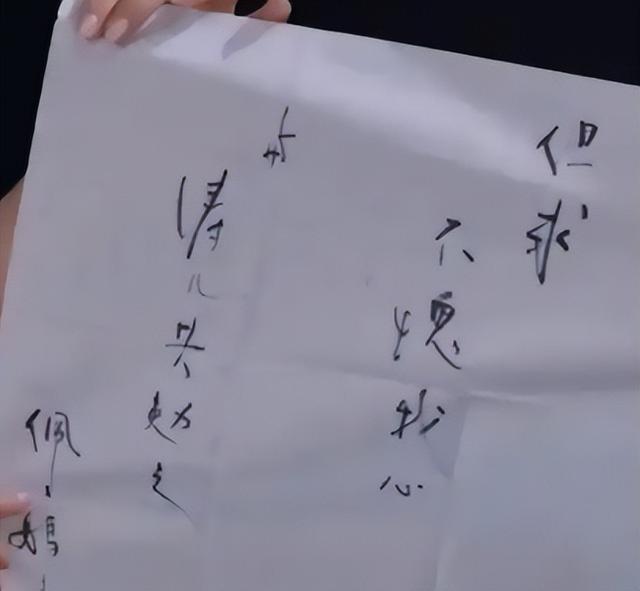 但求
不愧我心
与
涛儿共勉之
佩妈